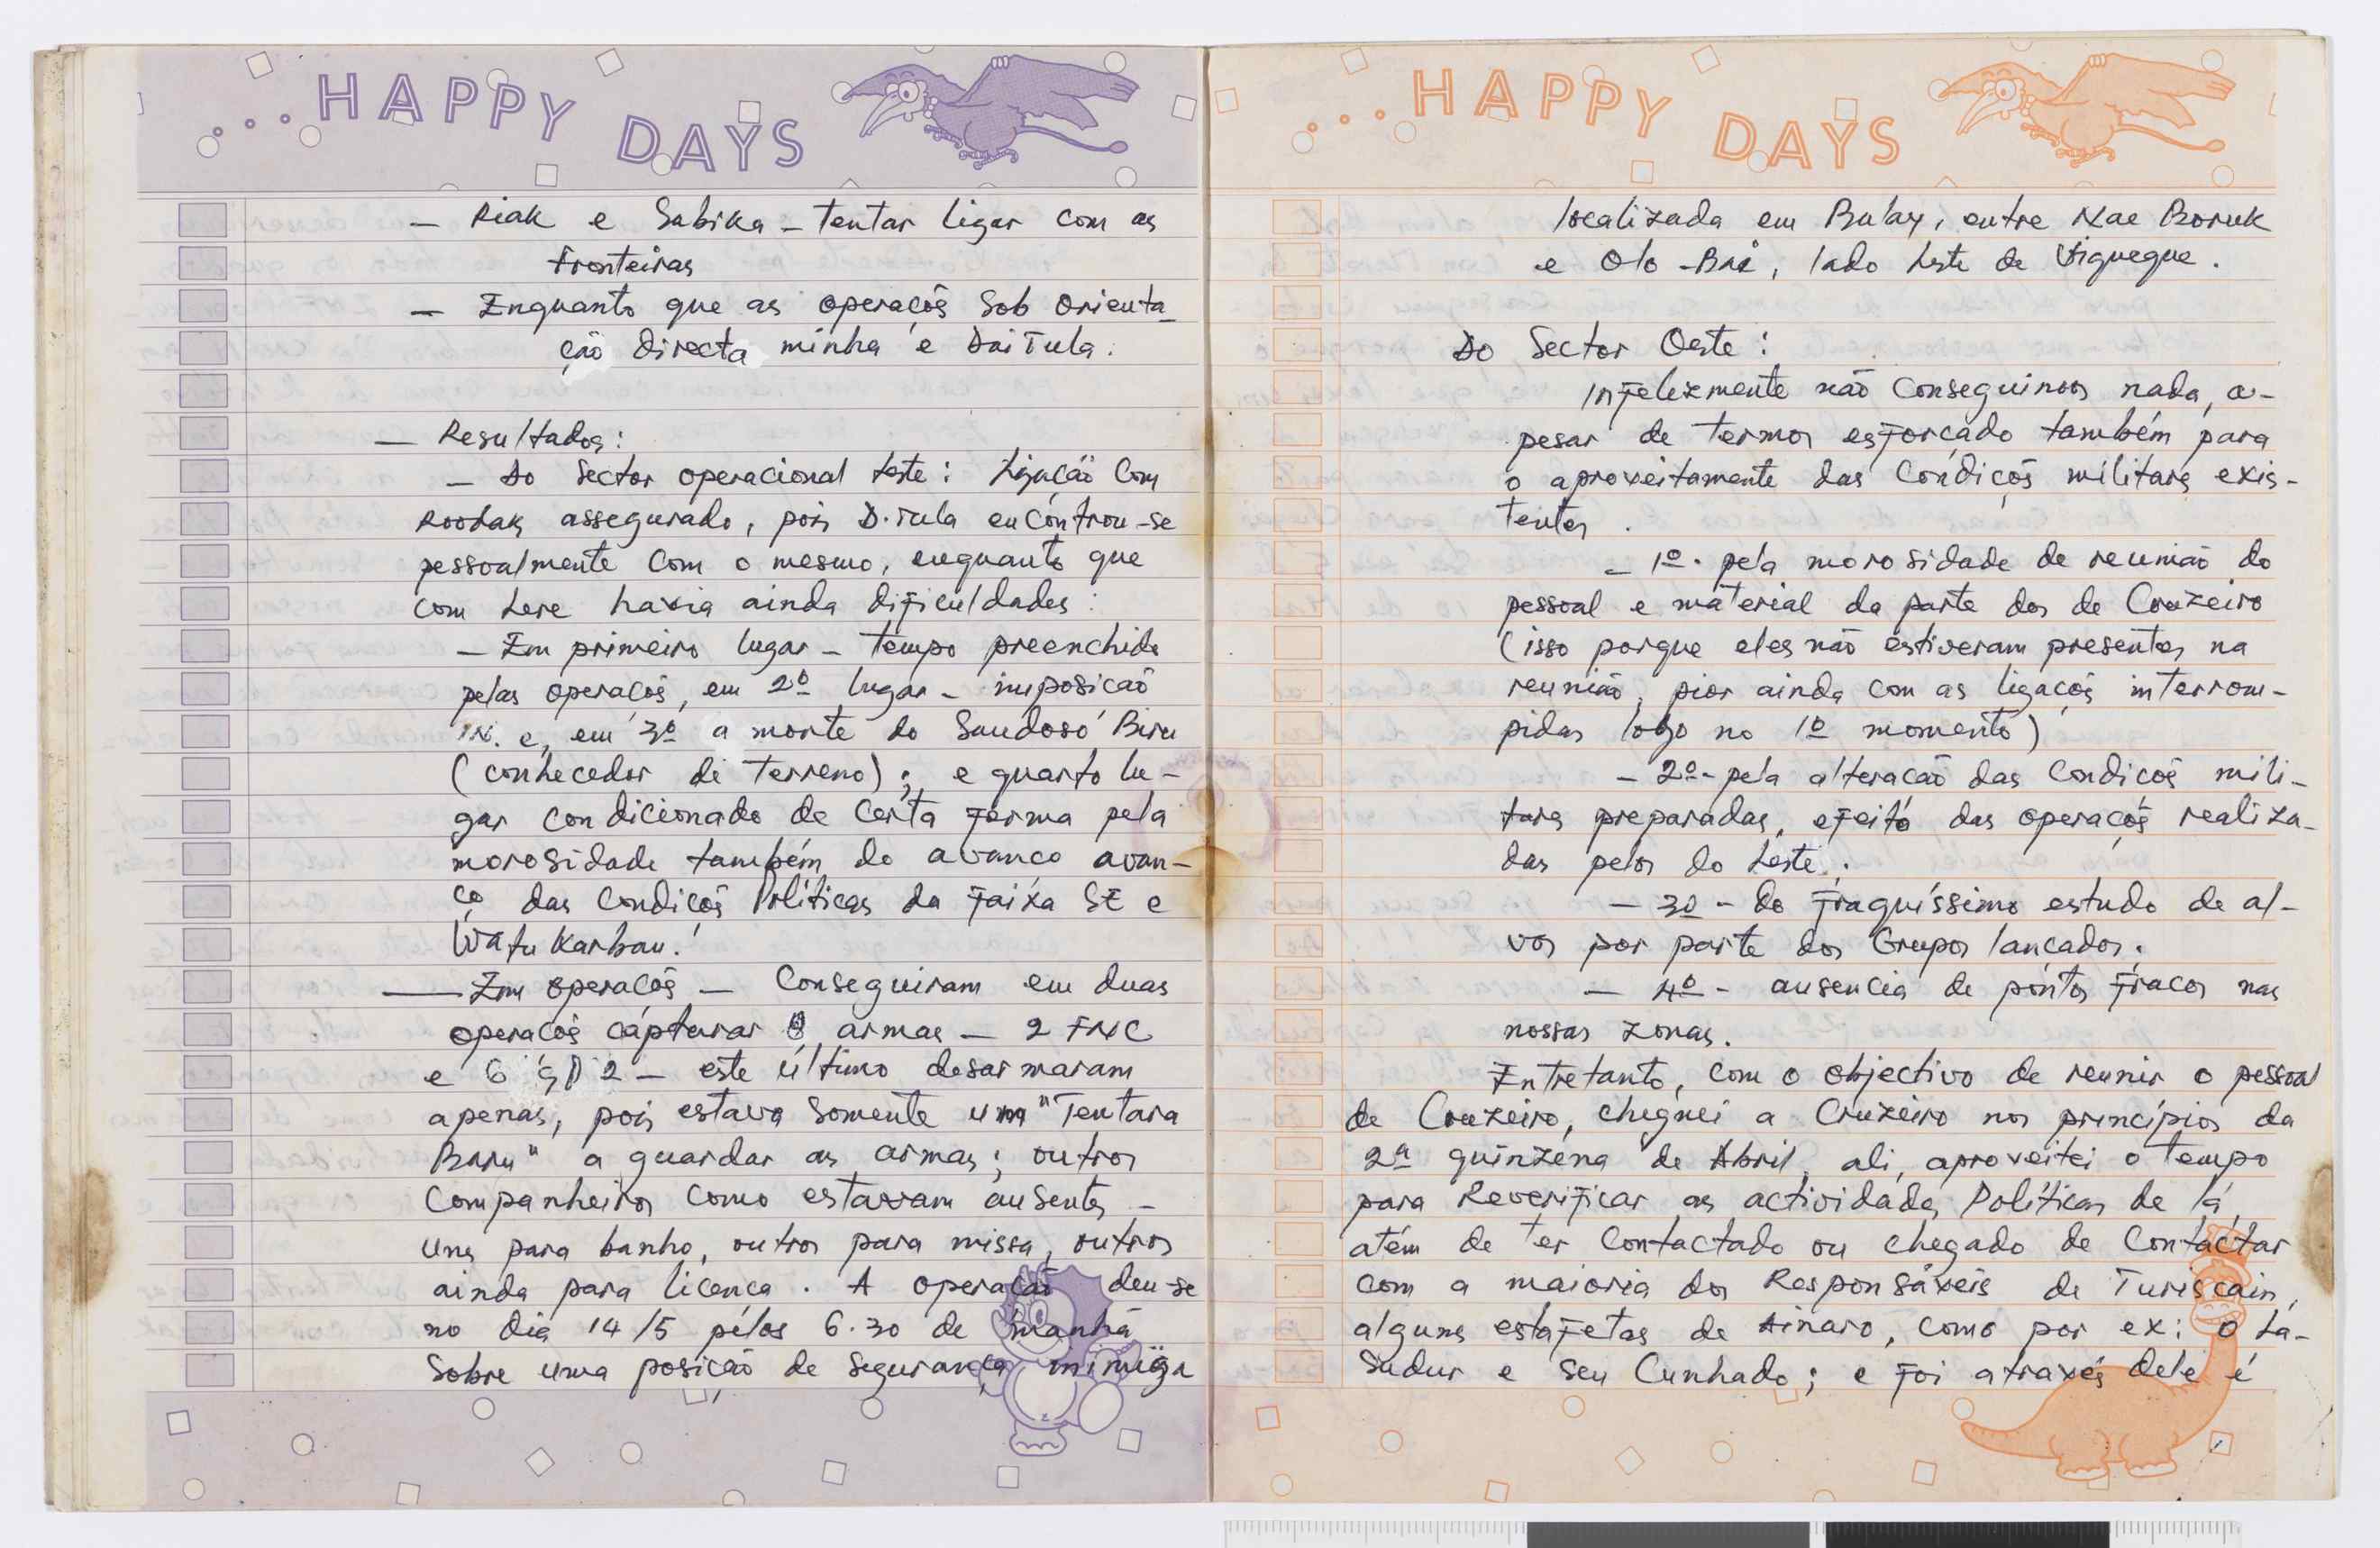 ...HAPPY DAYS
— Riak e Sabika – tentar ligar com as
fronteiras
— Enquanto que as operacõs sob orienta_
ção directa minha e DaiTula.
— Resultados:
— Do Sector operacional Leste: Ligação com
Roodak assegurado, pois D.Tula encontrou-se
pessoalmente com o mesmo, enquanto que
com Lere havia ainda dificuldades:
— Em primeiro lugar – tempo preenchido
pelas operacõs, em 2º lugar – imposicão
IN. e, em 3º a morte do Saudoso Biru
(conhecedor de terreno); e quarto lu-
gar condicionado de certa forma pela
morosidade também do avanco avan-
ço das condições Políticas da faixa SE e
Watu Karbau.
— Em operacõs — Conseguiram em duas
operacõs capturar 8 armas — 2 FNC
e 6 SP2 — este último desarmaram
apenas, pois estava somente um "Tentara
Baru" a guardar as armas; outros
Companheiros como estavam ausentes –
uns para banho, outros para missa, outros
ainda para licença. A operação deu-se
no dia 14/5 pelos 6.30 de manhã
Sobre uma posicão de segurança inimiga
...HAPPY DAYS
localizada em Bulay, entre Nae Boruk
e Olo-Bai, lado Leste de Viqueque.
Do Sector Oeste:
Infelizmente não conseguimos nada, a-
pesar de termos esforcado também para
o aproveitamente das condiços militares exis-
tentes.
– 1º. pela morosidade de reunião do
pessoal e material da parte dos de Cruzeiro
(isso porque eles não estiveram presentes na
reunião, pior ainda com as ligacõs interrom-
pidas logo no 1º momento)
– 2º- pela alteracão das condicõs mili-
tares preparadas, efeito das operacõs realiza-
das pelos do Leste;
– 3º - do fraquíssimo estudo de al-
vos por parte dos Grupos lançados;
— 4º - ausencia de pontos fracos nas
nossas zonas.
Entretanto, com o objectivo de reunir o pessoal
de Cruzeiro, cheguei a Cruzeiro nos princípios da
2ª quinzena de Abril, ali, aproveitei o tempo
para Reverificar as actividades Políticas de lá,
atém de ter contactado ou chegado de contactar
com a maioria dos Responsáveis de Turiscain,
alguns estafetas de Ainaro, como por ex: o La-
Sudur e seu Cunhado; e foi através dele é